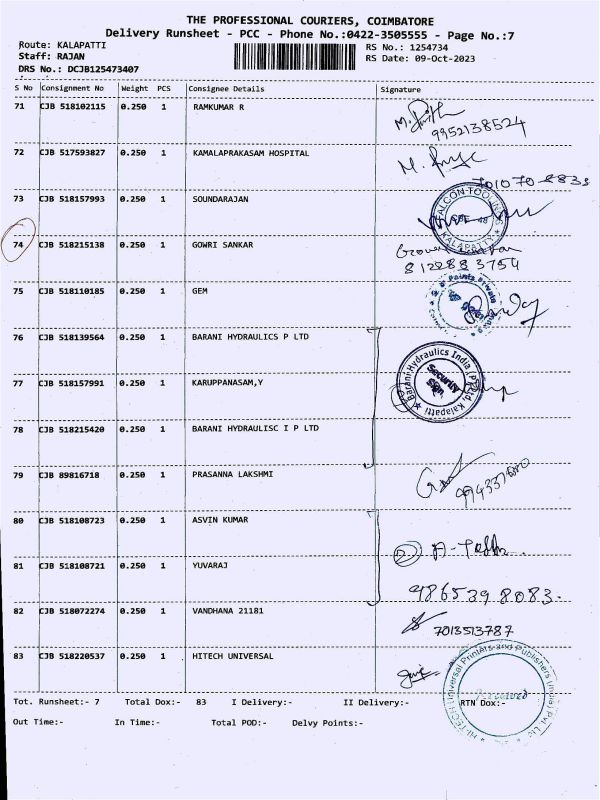 THE PROFESSIONAL COURIERS, COIMBATORE
Delivery Runsheet - PCC - Phone No.:0422-3505555 - Page No.:7
Route: KALAPATTI
Staff: RAJAN
DRS No.: DCJB125473407
RS No.: 1254734
RS Date: 09-Oct-2023
S No Consignment No Weight PCS Consignee Details Signature
71 CJB 518102115 0.250 1 RAMKUMAR R
9952138524
72 CJB 517593827 0.250 1 KAMALAPRAKASAM HOSPITAL
73 CJB 518157993 0.250 1 SOUNDARAJAN
FALCON-TOOLINGS
KALAPATTY
74 CJB 518215138 0.250 1 GOWRI SANKAR
8122883754
75 CJB 518110185 0.250 1 GEM
76 CJB 518139564 0.250 1 BARANI HYDRAULICS P LTD
77 CJB 518157991 0.250 1 KARUPPANASAM,Y
Barani Hydraulics India (P) Ltd, Kalapatti
Security
Sign
78 CJB 518215420 0.250 1 BARANI HYDRAULISC I P LTD
79 CJB 89816718 0.250 1 PRASANNA LAKSHMI
80 CJB 518108723 0.250 1 ASVIN KUMAR
81 CJB 518108721 0.250 1 YUVARAJ
9865398083.
82 CJB 518072274 0.250 1 VANDHANA 21181
7013513787
83 CJB 518220537 0.250 1 HITECH UNIVERSAL
HI-TECH Universal Printers and Publishers (India) Pvt. Ltd.
Received
Tot. Runsheet:- 7 Total Dox:- 83 I Delivery:- II Delivery:- RTN Dox:-
Out Time:- In Time:- Total POD:- Delvy Points:-